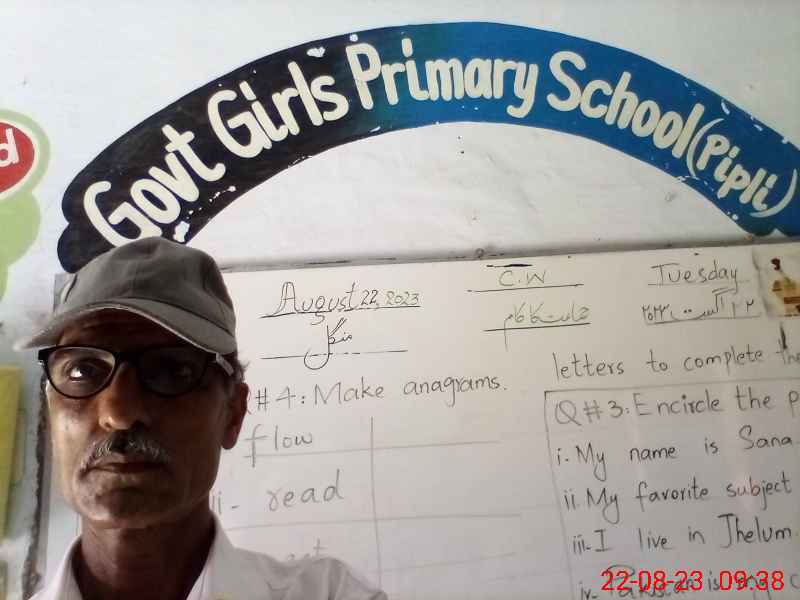 d
Govt Girls Primary School (Pipli)
August 22, 2023
C.W
Tuesday
منگل
جماعت کا کام
۲۲ اگست ۲۰۲۳
Q#4: Make anagrams.
flow
ii- read
letters to complete the
Q#3: Encircle the p
i. My name is Sana.
ii. My favorite subject
iii. I live in Jhelum.
iv. Pakistan is my
22-08-23 09:38